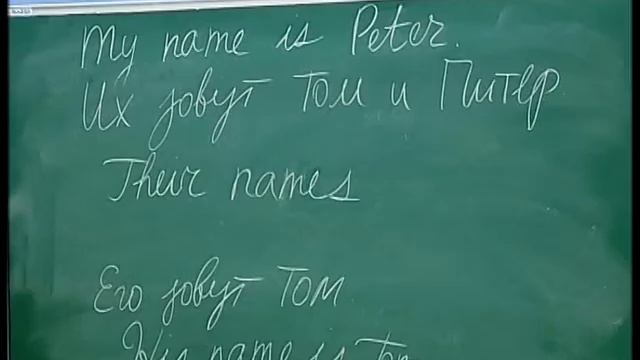 My name is Peter.
Их зовут Том и Питер
Their names
Его зовут Том
His name is